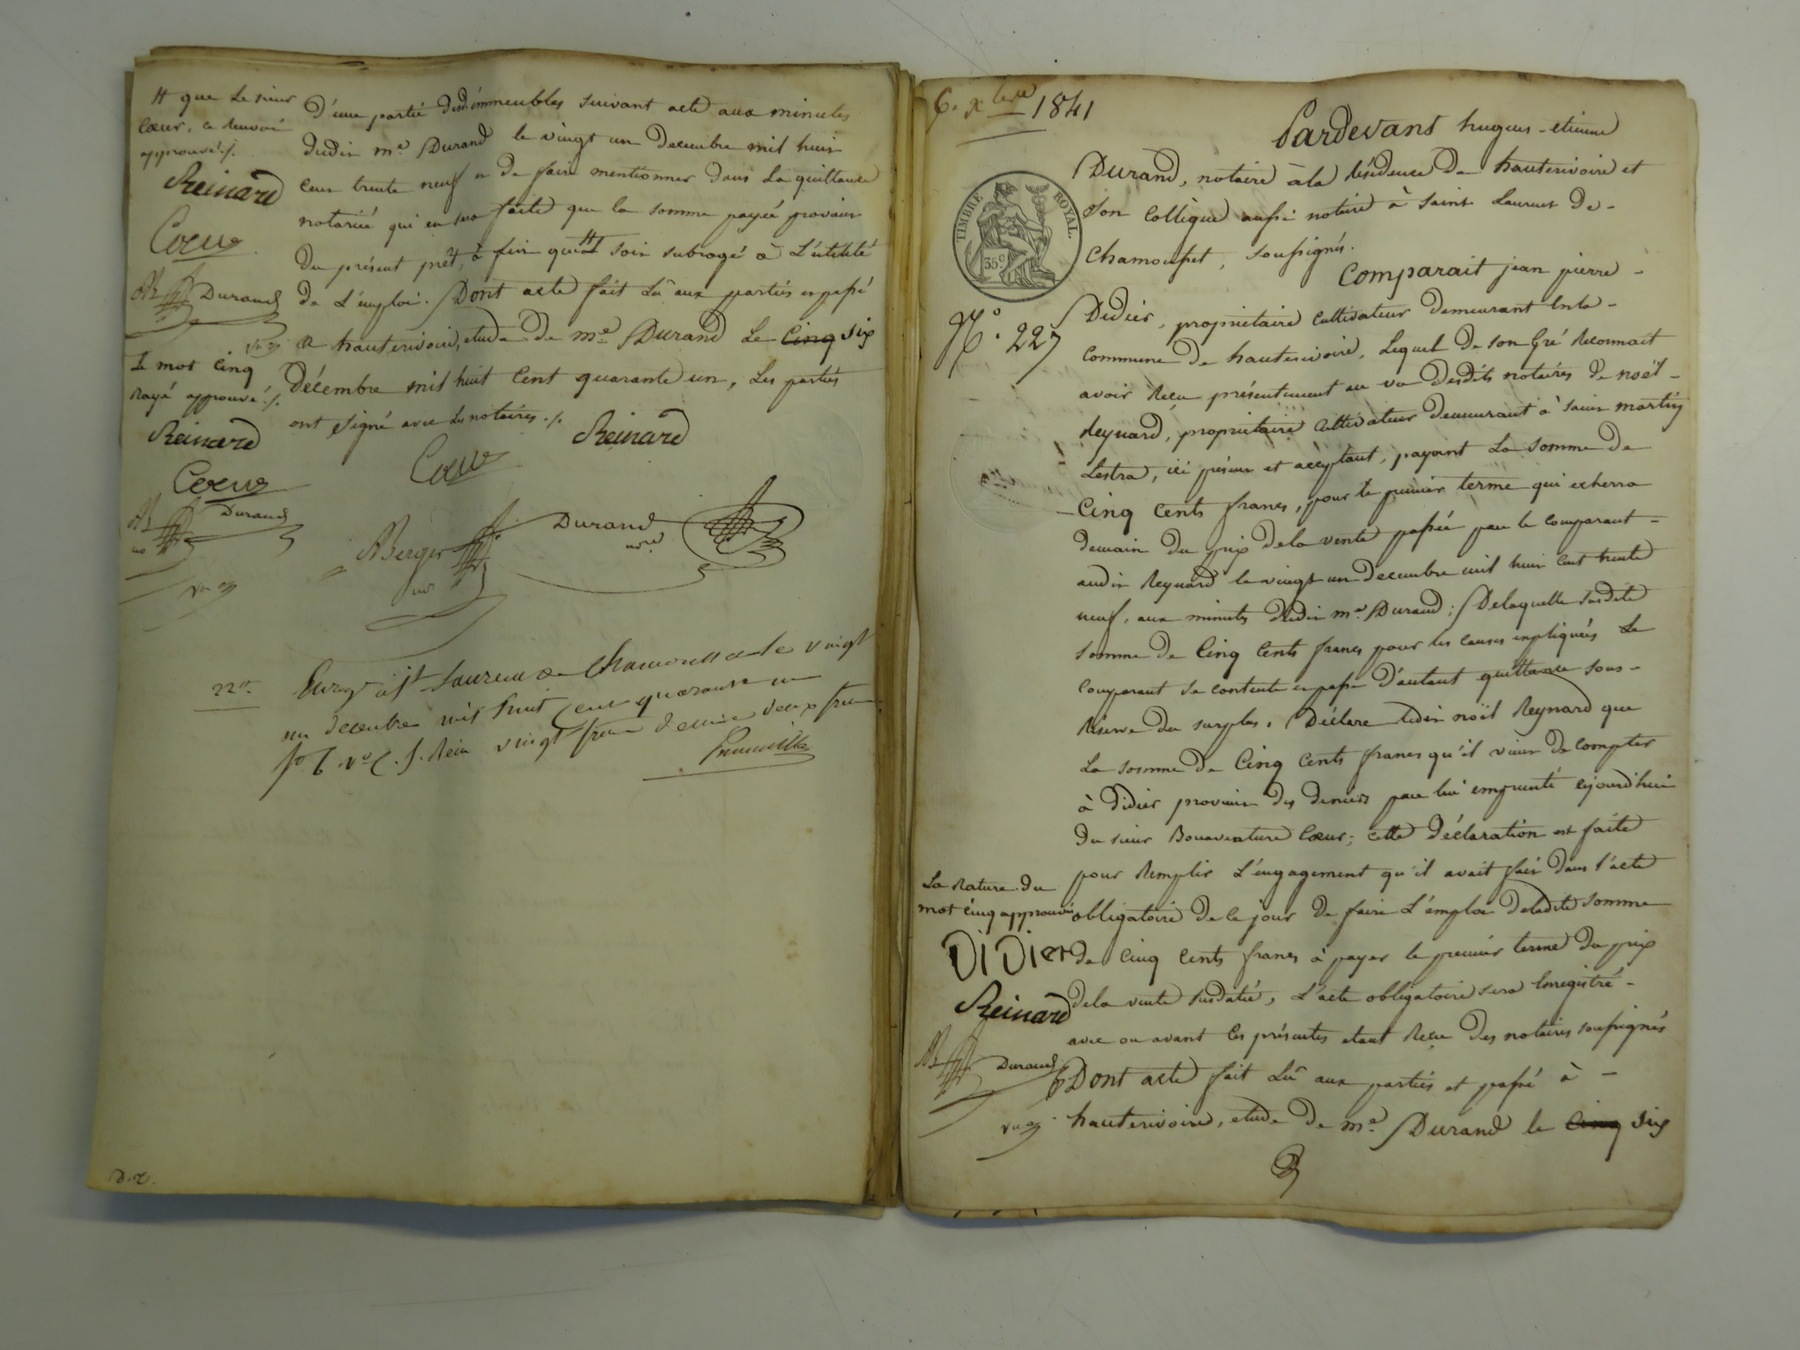 # que le sieur
Cœur, ce renvoi
approuvé ./.
Reinard
Cœur
Durand
Le mot cinq
rayé approuvé ./.
Reinard
Cœur
Durand
d'une partie desd. immeubles suivant acte aux minutes
dudit me. Durand le vingt un Decembre mil huit
cent trente neuf et de faire mentionner dans la quittance
notariée qui en sera faite que la somme payée provient
du présent prêt, à fin qu'il # soit subrogé à l'utilité
de l'emploi. Dont acte fait lû aux parties et passé
a hauterivoire, etude de me. Durand le cinq six
décembre mil huit cent quarante un, les parties
ont signé avec les notaires ./.
Reinard
Cœur
Berger
nre
Durand
nore
22 
Enreg. à St Laurent de Chamousset le vingt
un decembre mil huit cent quarante un
fo 6 vo C. 5. Reçu vingt francs decime deux francs
D.R.
6. Xbre 1841
Pardevant hugues-etienne
Durand, notaire à la résidence de hauterivoire et
son collègue aussi notaire à Saint Laurent de-
Chamousset, soussignés.
TIMBRE ROYAL.
35c
Comparait jean pierre -
N°. 227
Didier, propriétaire cultivateur demeurant en la -
commune de hauterivoire, lequel de son gré reconnait
avoir reçu présentement au vu desdits notaires de noël -
Reynard, propriétaire cultivateur demeurant à saint martin
Lestra, ici présent et acceptant, payant la somme de
Cinq Cents francs, pour le premier terme qui echerra
demain du prix de la vente passée par le comparant -
audit Reynard le vingt un Decembre mil huit cent trente
neuf, aux minutes dudit me. Durand; De laquelle susdite
somme de Cinq Cents francs pour les causes expliquées le
comparant se contente et passe d'autant quittance sous-
réserve du surplus. Déclare ledit noël Reynard que
la somme de Cinq Cents francs qu'il vient de compter
à Didier provient des deniers par lui emprunté cejourd'hui
du sieur Bonaventure Cœur; cette déclaration est faite
pour remplir l'engagement qu'il avait fait dans l'acte
obligatoire de ce jour de faire l'emploi de ladite somme
de Cinq Cents francs à payer le premier terme du prix
de la vente susdatée, l'acte obligatoire sera enregistré -
avec ou avant les présentes etant reçu des notaires soussignés
Dont acte fait lû aux parties et passé à -
hauterivoire, etude de me. Durand le cinq six
La rature du
mot cinq approuvée
DiDier
Reinard
Durand